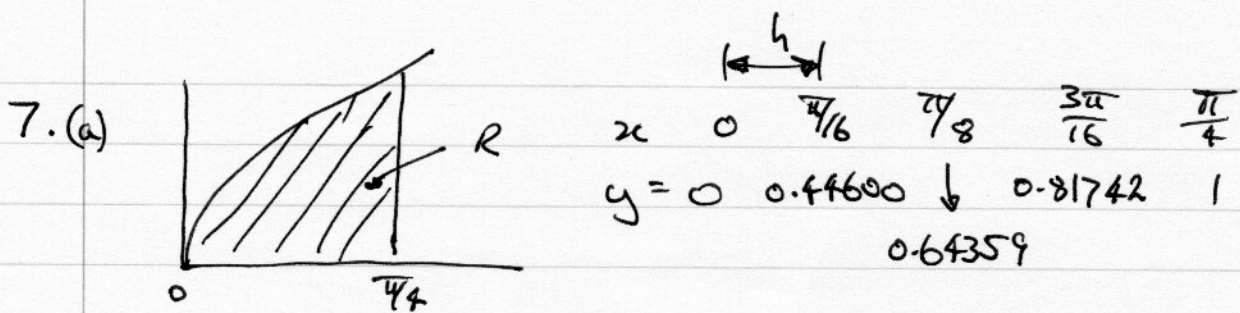 h
7.(a) R x 0 π/16 π/8 3π/16 π/4
y = 0 0.44600 ↓ 0.81742 1
0.64359
0 π/4